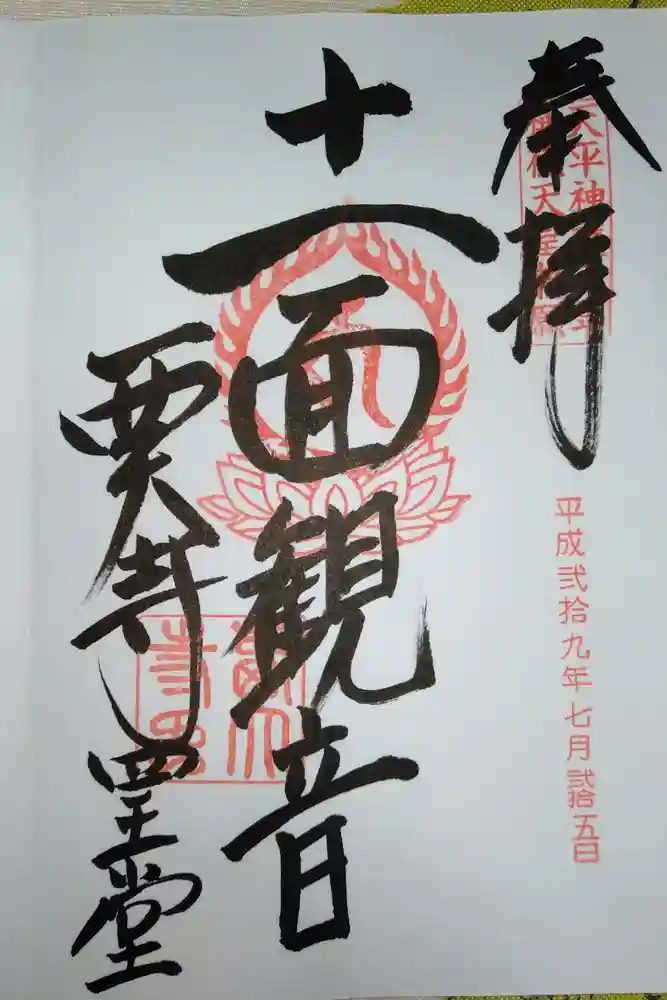 奉拝
天平神
天皇勅願
平成弐拾九年七月弐拾五日
十一面観音
西大寺四王堂